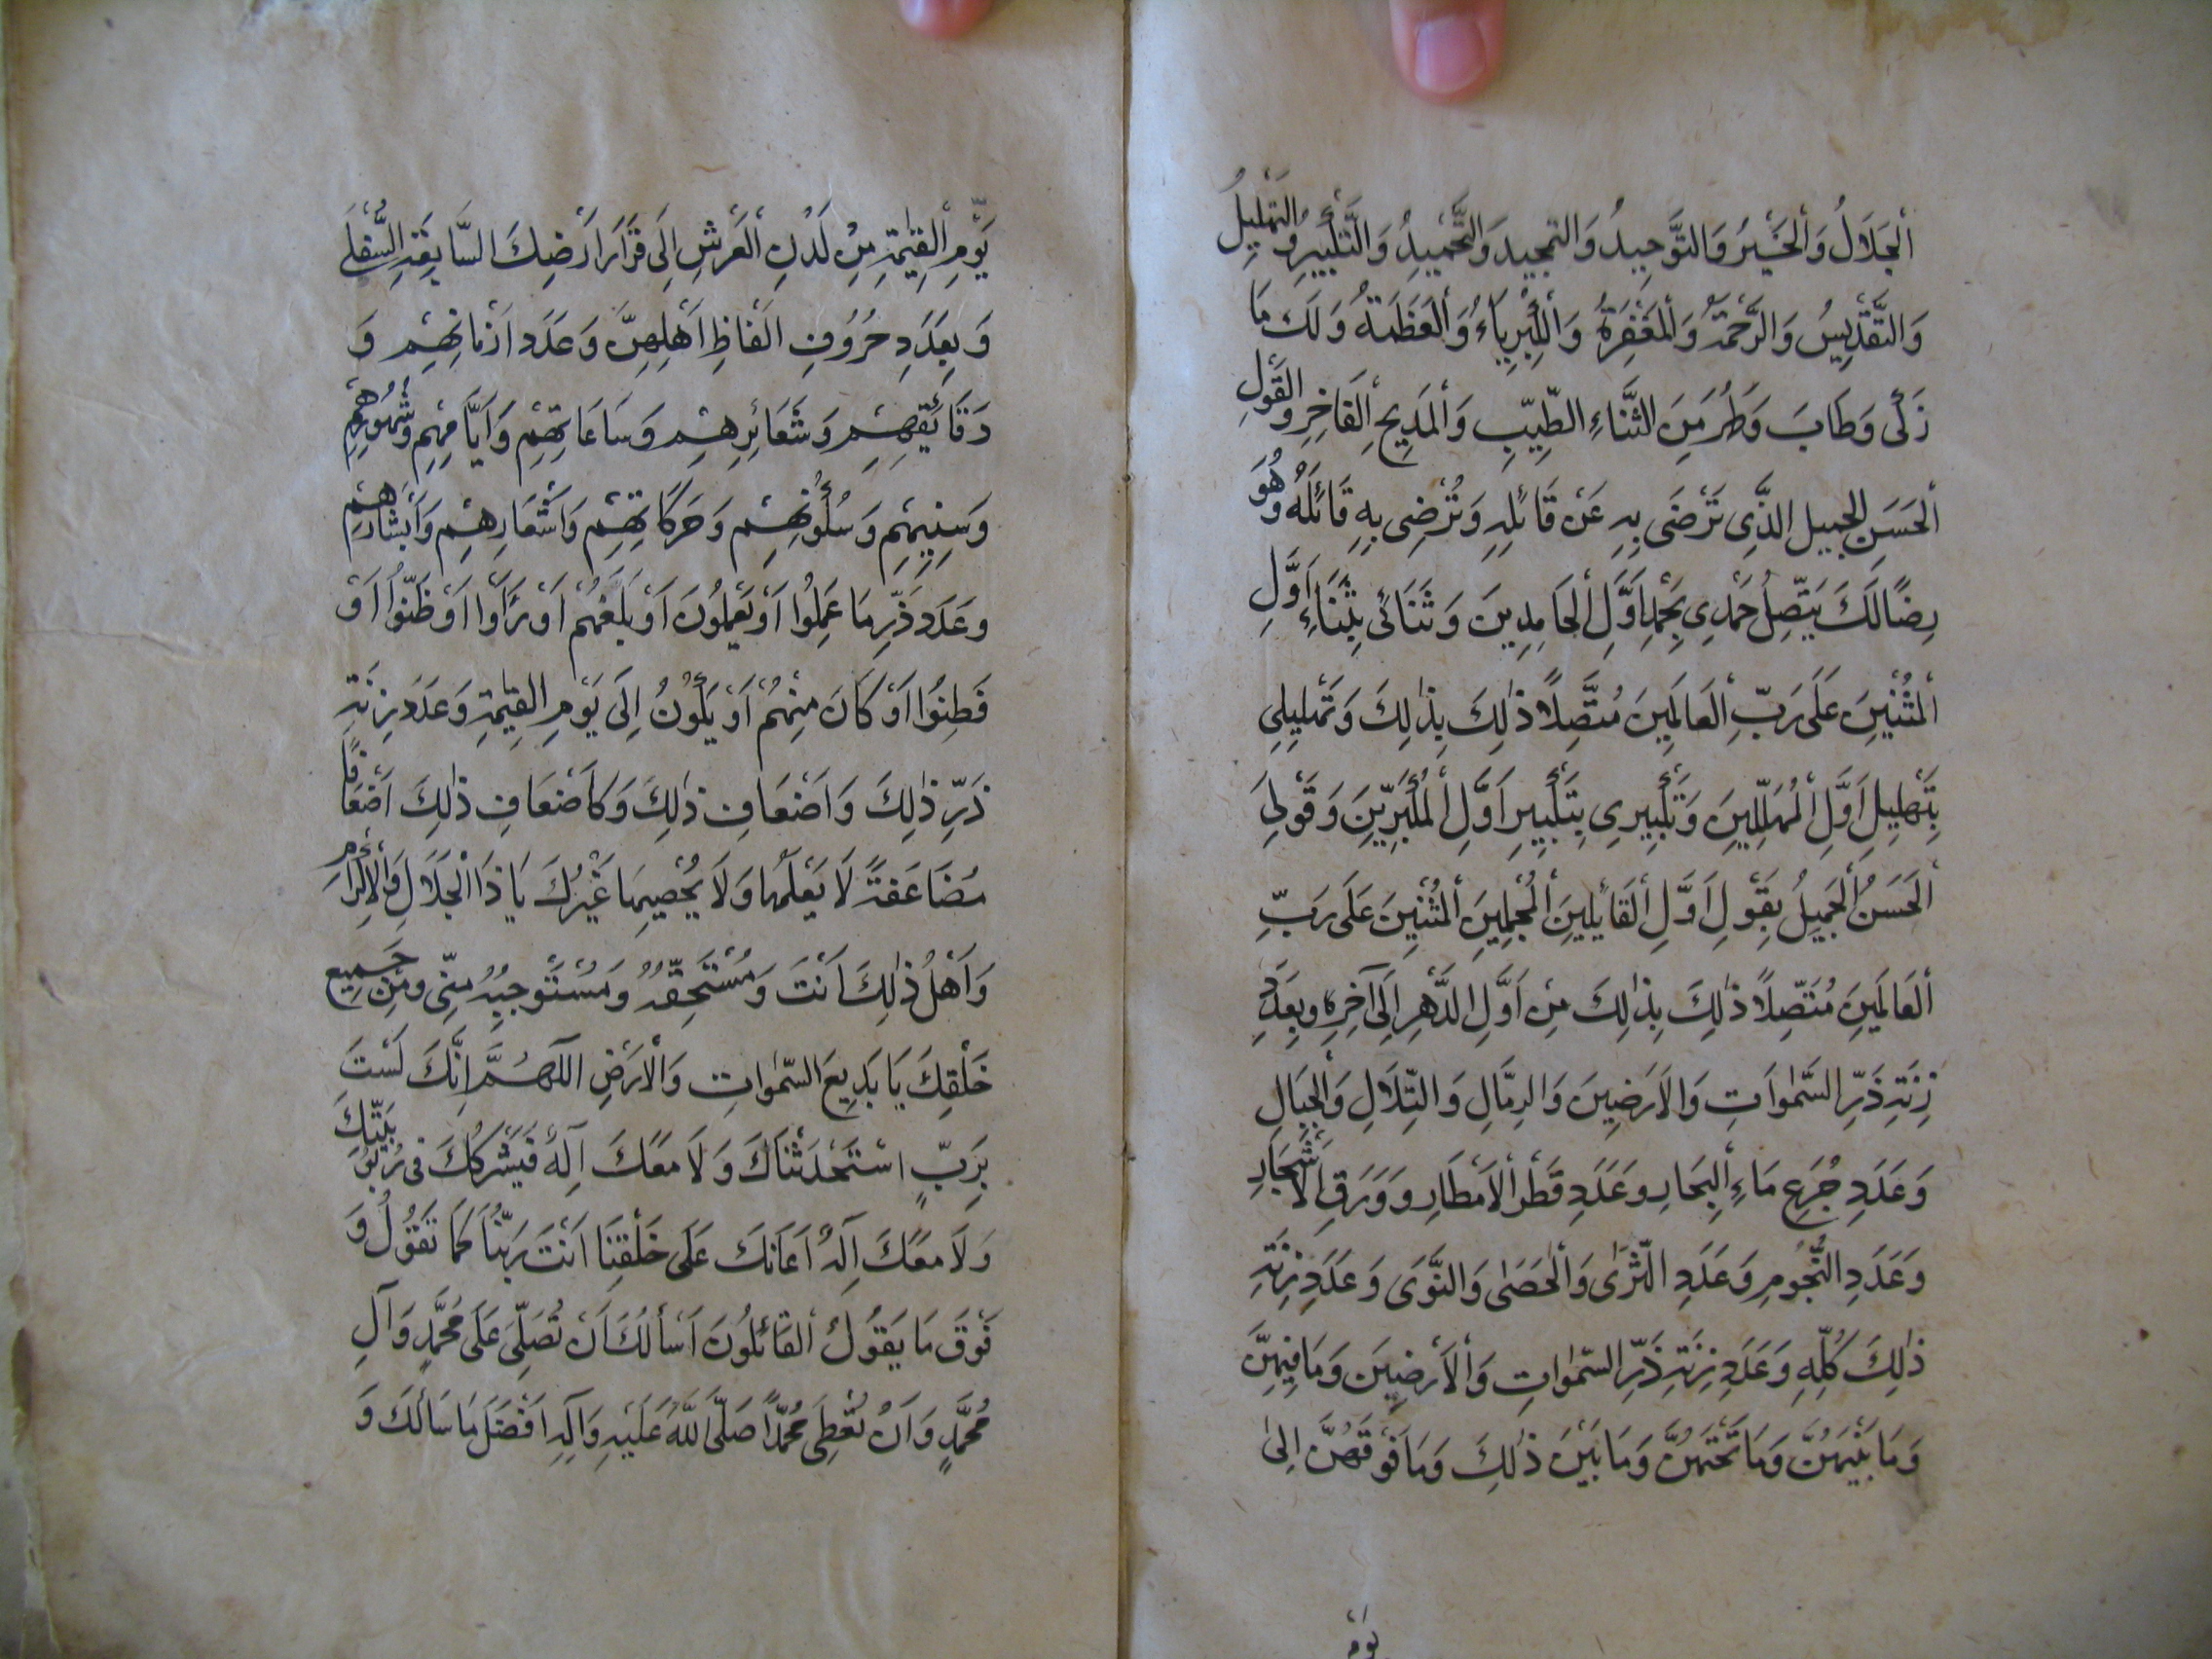 اَلْجَلَالُ وَالْخَيْرُ وَالتَّوْحِيدُ وَالتَّمْجِيدِ وَالتَّحْمِيدِ وَالتَّكْبِيرِ وَالتَّهْلِيلِ
وَالتَّقْدِيسُ وَالرَّحْمَةُ وَالْمَغْفِرَةُ وَالْكِبْرِيَاءُ وَالْعَظَمَةُ وَلَكَ مَا
زَكٰى وَطَابَ وَطَهُرَ مِنَ الثَّنَاءِ الطَّيِّبِ وَالْمَدِيحِ الْفَاخِرِ وَالْقَوْلِ
الْحَسَنِ الْجَمِيلِ الَّذِي تَرْضَى بِهِ عَنْ قَائِلِهِ وَتُرْضِي بِهِ قَائِلَهُ وَهُوَ
رِضًا لَكَ يَتَّصِلُ حَمْدِي بِحَمْدِ اَوَّلِ الْحَامِدِينَ وَثَنَائِي بِثَنَاءِ اَوَّلِ
الْمُثْنِينَ عَلَى رَبِّ الْعَالَمِينَ مُتَّصِلًا ذٰلِكَ بِذٰلِكَ وَتَهْلِيلِي
بِتَهْلِيلِ اَوَّلِ الْمُهَلِّلِينَ وَتَكْبِيرِي بِتَكْبِيرِ اَوَّلِ الْمُكَبِّرِينَ وَقَوْلِيَ
الْحَسَنُ الْجَمِيلُ بِقَوْلِ اَوَّلِ الْقَائِلِينَ الْمُجْمِلِينَ الْمُثْنِينَ عَلَى رَبِّ
الْعَالَمِينَ مُتَّصِلًا ذٰلِكَ بِذٰلِكَ مِنْ اَوَّلِ الدَّهْرِ اِلَى آخِرِهِ وَبِعَدَدِ
زِنَةِ ذَرِّ السَّمٰوَاتِ وَالْاَرَضِينَ وَالرِّمَالِ وَالتِّلَالِ وَالْجِبَالِ
وَعَدَدِ جُرَعِ مَاءِ الْبِحَارِ وَعَدَدِ قَطْرِ الْاَمْطَارِ وَوَرَقِ الْاَشْجَارِ
وَعَدَدِ النُّجُومِ وَعَدَدِ الثَّرٰى وَالْحَصٰى وَالنَّوَى وَعَدَدِ زِنَةِ
ذٰلِكَ كُلِّهِ وَعَدَدِ زِنَةِ ذَرِّ السَّمٰوَاتِ وَالْاَرَضِينَ وَمَا فِيهِنَّ
وَمَا بَيْنَهُنَّ وَمَا تَحْتَهُنَّ وَمَا بَيْنَ ذٰلِكَ وَمَا فَوْقَهُنَّ اِلٰى
يَوْمِ
يَوْمِ الْقِيٰمَةِ مِنْ لَدُنِ الْعَرْشِ اِلَى قَرَارِ اَرْضِكَ السَّابِعَةِ السُّفْلَى
وَبِعَدَدِ حُرُوفِ اَلْفَاظِ اَهْلِهِنَّ وَعَدَدِ اَزْمَانِهِمْ وَ
دَقَائِقِهِمْ وَشَعَائِرِهِمْ وَسَاعَاتِهِمْ وَاَيَّامِهِمْ وَشُهُورِهِمْ
وَسِنِيهِمْ وَسُكُونِهِمْ وَحَرَكَاتِهِمْ وَاَشْعَارِهِمْ وَاَبْشَارِهِمْ
وَعَدَدِ ذَرِّ مَا عَمِلُوا اَوْ يَعْمَلُونَ اَوْ بَلَغَهُمْ اَوْ رَأَوْا اَوْ ظَنُّوا اَوْ
فَطِنُوا اَوْ كَانَ مِنْهُمْ اَوْ يَكُونُ اِلَى يَوْمِ الْقِيٰمَةِ وَعَدَدِ زِنَةِ
ذَرِّ ذٰلِكَ وَاَضْعَافِ ذٰلِكَ وَكَاَضْعَافِ ذٰلِكَ اَضْعَافًا
مُضَاعَفَةً لَا يَعْلَمُهَا وَلَا يُحْصِيهَا غَيْرُكَ يَا ذَا الْجَلَالِ وَالْاِكْرَامِ
وَاَهْلُ ذٰلِكَ اَنْتَ وَمُسْتَحِقُّهُ وَمُسْتَوْجِبُهُ مِنِّي وَمِنْ جَمِيعِ
خَلْقِكَ يَا بَدِيعَ السَّمٰوَاتِ وَالْاَرَضِ اَللّٰهُمَّ اِنَّكَ لَسْتَ
بِرَبٍّ اسْتَحْدَثْنَاكَ وَلَا مَعَكَ اِلَهٌ فَيَشْرَكُكَ فِي رُبُوبِيَّتِكَ
وَلَا مَعَكَ اِلَهٌ اَعَانَكَ عَلَى خَلْقِنَا اَنْتَ رَبُّنَا كَمَا تَقُولُ وَ
فَوْقَ مَا يَقُولُ الْقَائِلُونَ اَسْأَلُكَ اَنْ تُصَلِّيَ عَلَى مُحَمَّدٍ وَآلِ
مُحَمَّدٍ وَاَنْ تُعْطِيَ مُحَمَّدًا صَلَّى اللّٰهُ عَلَيْهِ وَآلِهِ اَفْضَلَ مَا سَأَلَكَ وَ